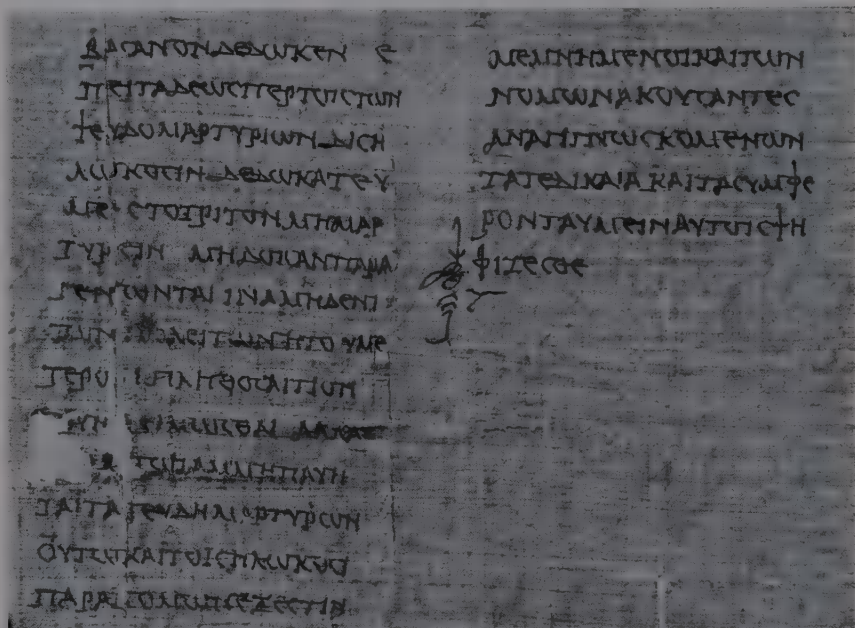 ΒΑϹΑΝΟΝΔΕΔΩΚΕΝ Ε
ΠΕΙΤΑΔΕΩϹΠΕΡΤΟΙϹΤΩΝ
ΨΕΥΔΟΜΑΡΤΥΡΙΩΝΔΙϹΗ
ΛΩΚΟϹΙΝΔΕΔΩΚΑΤΕΥ
ΜΕΙϹΤΟΤΡΙΤΟΝΜΗΜΑΡ
ΤΥΡΕΙΝ ΜΗΔΟΙϹΑΝΠΑΡΑ
ΓΕΝΩΝΤΑΙΙΝΑΜΗΔΕΝΙ
ΤΩΝ ΠΟΛΕΙΤΩΝΗΙΤΟΥΜΕ
ΤΕΡΟΝΠΛΗΘΟϹΑΙΤΙΟΝ
ΑΝΜΗΠΑΥΗ
ΤΑΙΤΑΨΕΥΔΗΜΑΡΤΥΡΩΝ
ΟΥΤΩΚΑΙΤΟΙϹΗΛΩΚΟϹΙ
ΠΑΡΑΝΟΜΩΝΕΞΕϹΤΙΝ
ΜΕΜΝΗΜΕΝΟΙΚΑΙΤΩΝ
ΝΟΜΩΝΑΚΟΥϹΑΝΤΕϹ
ΑΝΑΓΙΓΝΩϹΚΟΜΕΝΩΝ
ΤΑΤΕΔΙΚΑΙΑΚΑΙΤΑϹΥΜΦΕ
ΡΟΝΤΑΥΜΕΙΝΑΥΤΟΙϹΨΗ
ΦΙΖΕϹΘΕ